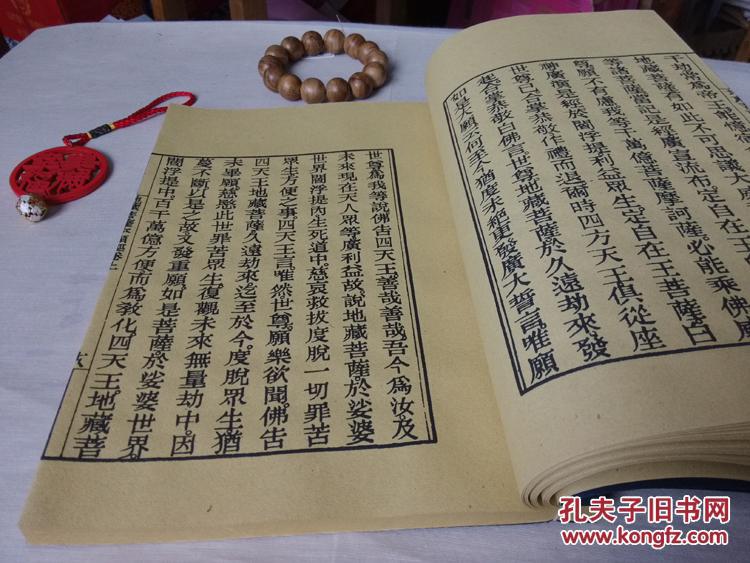 地藏菩薩有如此不可思議大
等諸菩薩當記是經廣宣流布定自在王菩薩白
尊願不有慮我等千萬億菩薩摩訶薩必能乘佛威
神廣演是經於閻浮提利益眾生定自在王菩薩白
世尊已合掌恭敬作禮而退爾時四方天王俱從座
起合掌恭敬白佛言世尊地藏菩薩於久遠劫來發
如是大願云何至今猶度未絕更發廣大誓言唯願
世尊為我等說佛告四天王善哉善哉吾今為汝及
未來現在天人眾等廣利益故說地藏菩薩於娑婆
世界閻浮提內生死道中慈哀救拔度脫一切罪苦
眾生方便之事四天王言唯然世尊願樂欲聞佛告
四天王地藏菩薩久遠劫來迄至於今度脫眾生猶
未畢願慈愍此世罪苦眾生復觀未來無量劫中因
蔓不斷以是之故又發重願如是菩薩於娑婆世界
閻浮提中百千萬億方便而為教化四天王地藏菩
孔夫子旧书网
www.kongfz.com